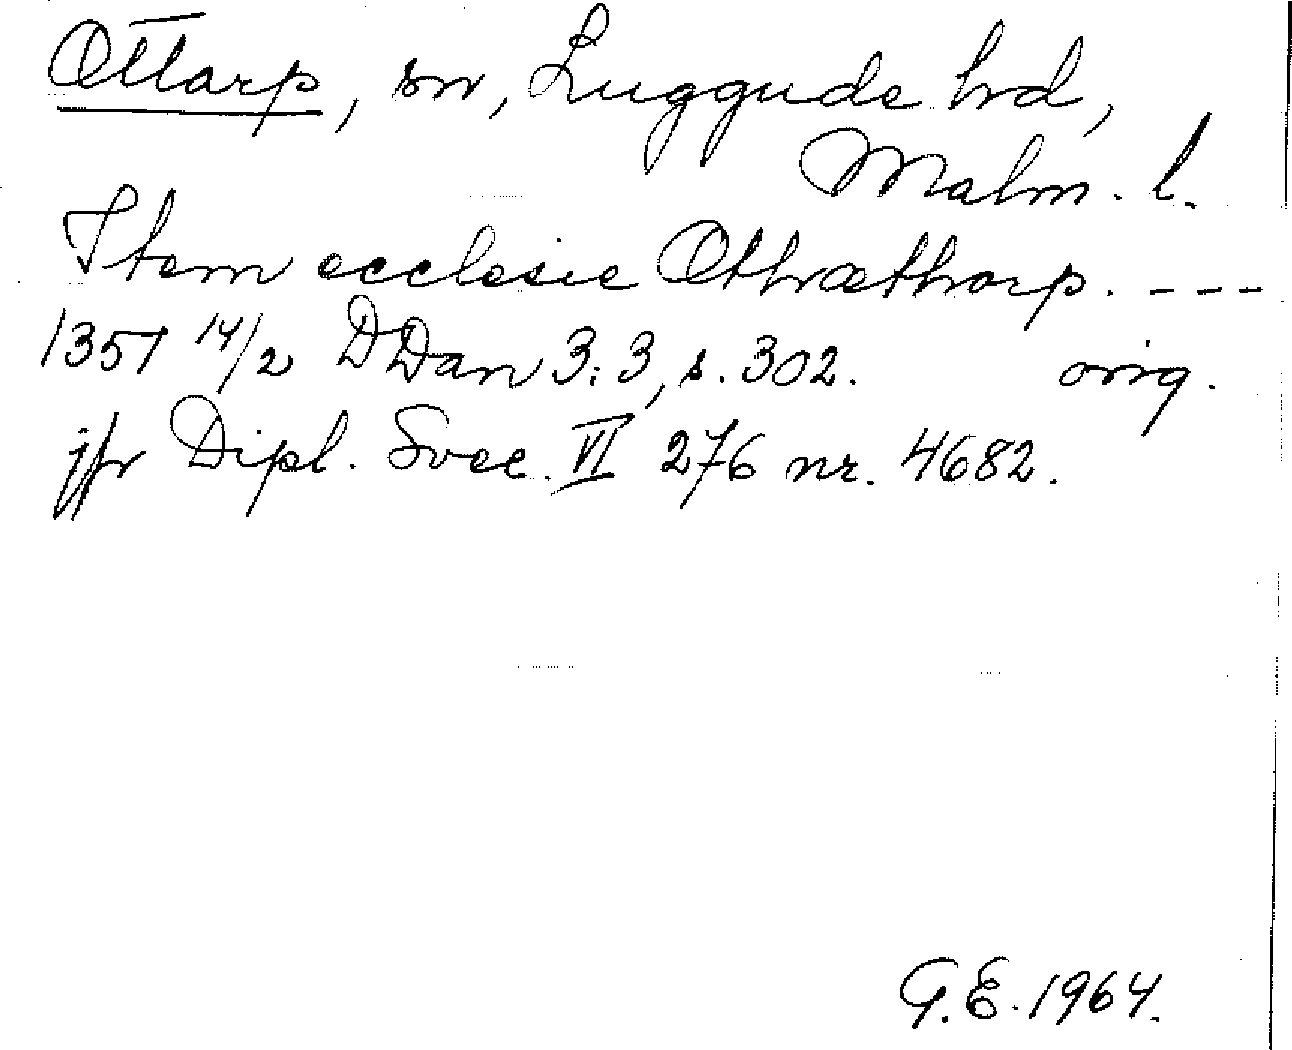 Ottarp, sn, Luggude hrd,
Malm. l.
Item ecclesie Othræthorp. ----
1351 14/2 DDan 3:3, s. 302. orig.
jfr Dipl. Svec. VI 276 nr. 4682.
G.E. 1964.